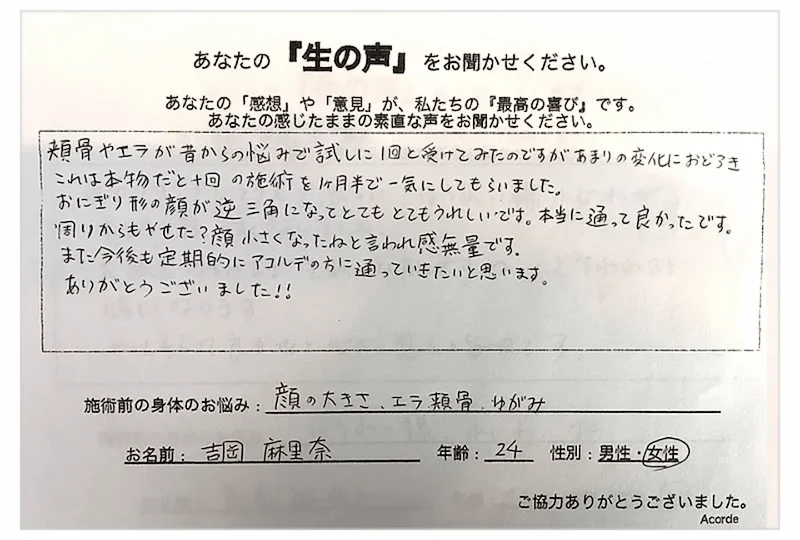 あなたの『生の声』をお聞かせください。
あなたの「感想」や「意見」が、私たちの『最高の喜び』です。
あなたの感じたままの素直な声をお聞かせください。
頬骨やエラが昔からの悩みで試しに1回と受けてみたのですがあまりの変化におどろき
これは本物だと十回の施術を1ヶ月半で一気にしてもらいました。
おにぎり形の顔が逆三角になってとてもとてもうれしいです。本当に通って良かったです。
周りからもやせた?顔小さくなったねと言われ感無量です。
また今後も定期的にアコルデの方に通っていきたいと思います。
ありがとうございました!!
施術前の身体のお悩み:顔の大きさ、エラ頬骨、ゆがみ
お名前:吉岡 麻里奈 年齢:24 性別:男性・女性
ご協力ありがとうございました。
Acorde